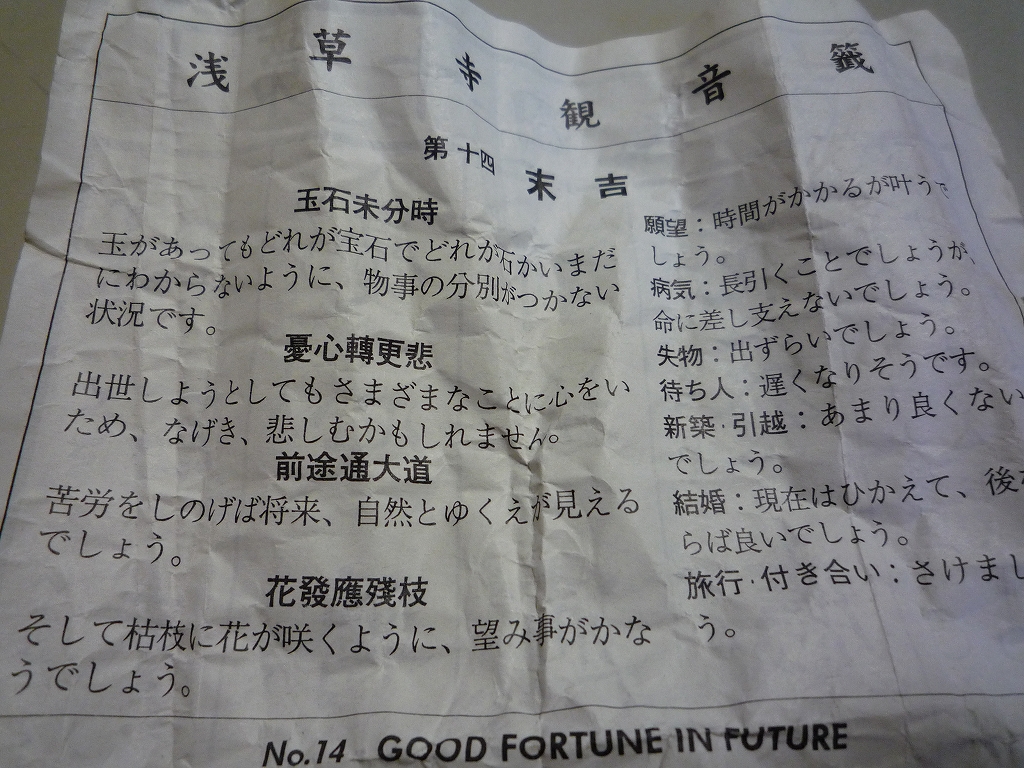 浅草寺観音籤
第十四 末吉
玉石未分時
玉があってもどれが宝石でどれが石かいまだ
にわからないように、物事の分別がつかない
状況です。
憂心轉更悲
出世しようとしてもさまざまなことに心をい
ため、なげき、悲しむかもしれません。
前途通大道
苦労をしのげば将来、自然とゆくえが見える
でしょう。
花發應殘枝
そして枯枝に花が咲くように、望み事がかな
うでしょう。
願望:時間がかかるが叶うで
しょう。
病気:長引くことでしょうが、
命に差し支えないでしょう。
失物:出ずらいでしょう。
待ち人:遅くなりそうです。
新築·引越:あまり良くない
でしょう。
結婚:現在はひかえて、後
らば良いでしょう。
旅行·付き合い:さけまし
う。
No.14 GOOD FORTUNE IN FUTURE